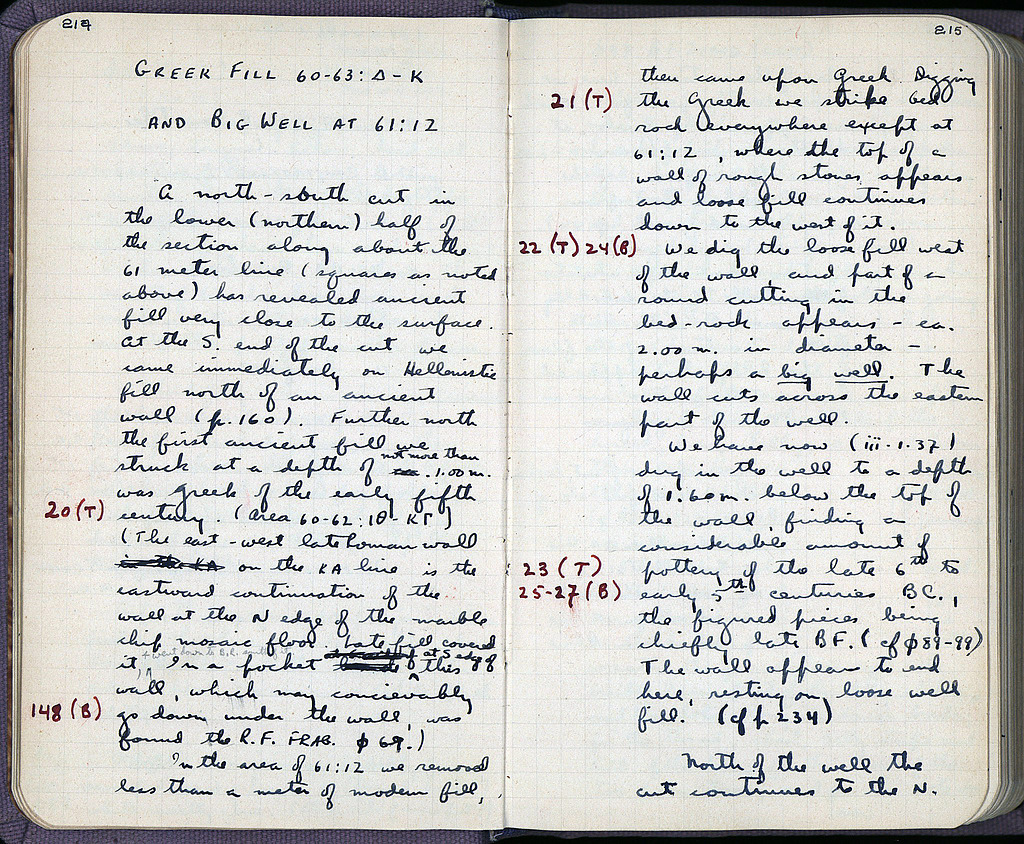 214
GREEK FILL 60-63: Δ - K
AND BIG WELL AT 61:12
A north-south cut in
the lower (northern) half of
the section along about the
61 meter line (squares as noted
above) has revealed ancient
fill very close to the surface.
At the S. end of the cut we
came immediately on Hellenistic
fill north of an ancient
wall (p. 160). Further north
the first ancient fill we
struck at a depth of not more than 1.00 m.
was Greek of the early fifth
20 (T) century. (Area 60-62: ΙΘ - ΚΓ)
(The east-west late Roman wall
on the KA line is the
eastward continuation of the
wall at the N edge of the marble
chip mosaic floor. Late fill covered
it + went down to B.R. south of it. In a pocket at S edge of this
wall, which may concievably
148 (B) go down under the wall, was
found the R.F. FRAG. φ 69.)
In the area of 61:12 we removed
less than a meter of modern fill,
215
then came upon Greek. Digging
21 (T) the Greek we strike bed
rock everywhere except at
61:12, where the top of a
wall of rough stones appears
and loose fill continues
down to the west of it.
22 (T) 24 (B) We dig the loose fill west
of the wall, and part of a
round cutting in the
bed-rock appears - ca.
2.00 m. in diameter -
perhaps a big well. The
wall cuts across the eastern
part of the well.
We have now (iii·1·37)
dug in the well to a depth
of 1.60 m. below the top of
the wall, finding a
considerable amount of
23 (T) pottery of the late 6th to
25-27 (B) early 5th centuries BC.,
the figured pieces being
chiefly late BF. (cf φ 89-99)
The wall appears to end
here, resting on loose well
fill. (cf p. 234)
North of the well the
cut continues to the N.